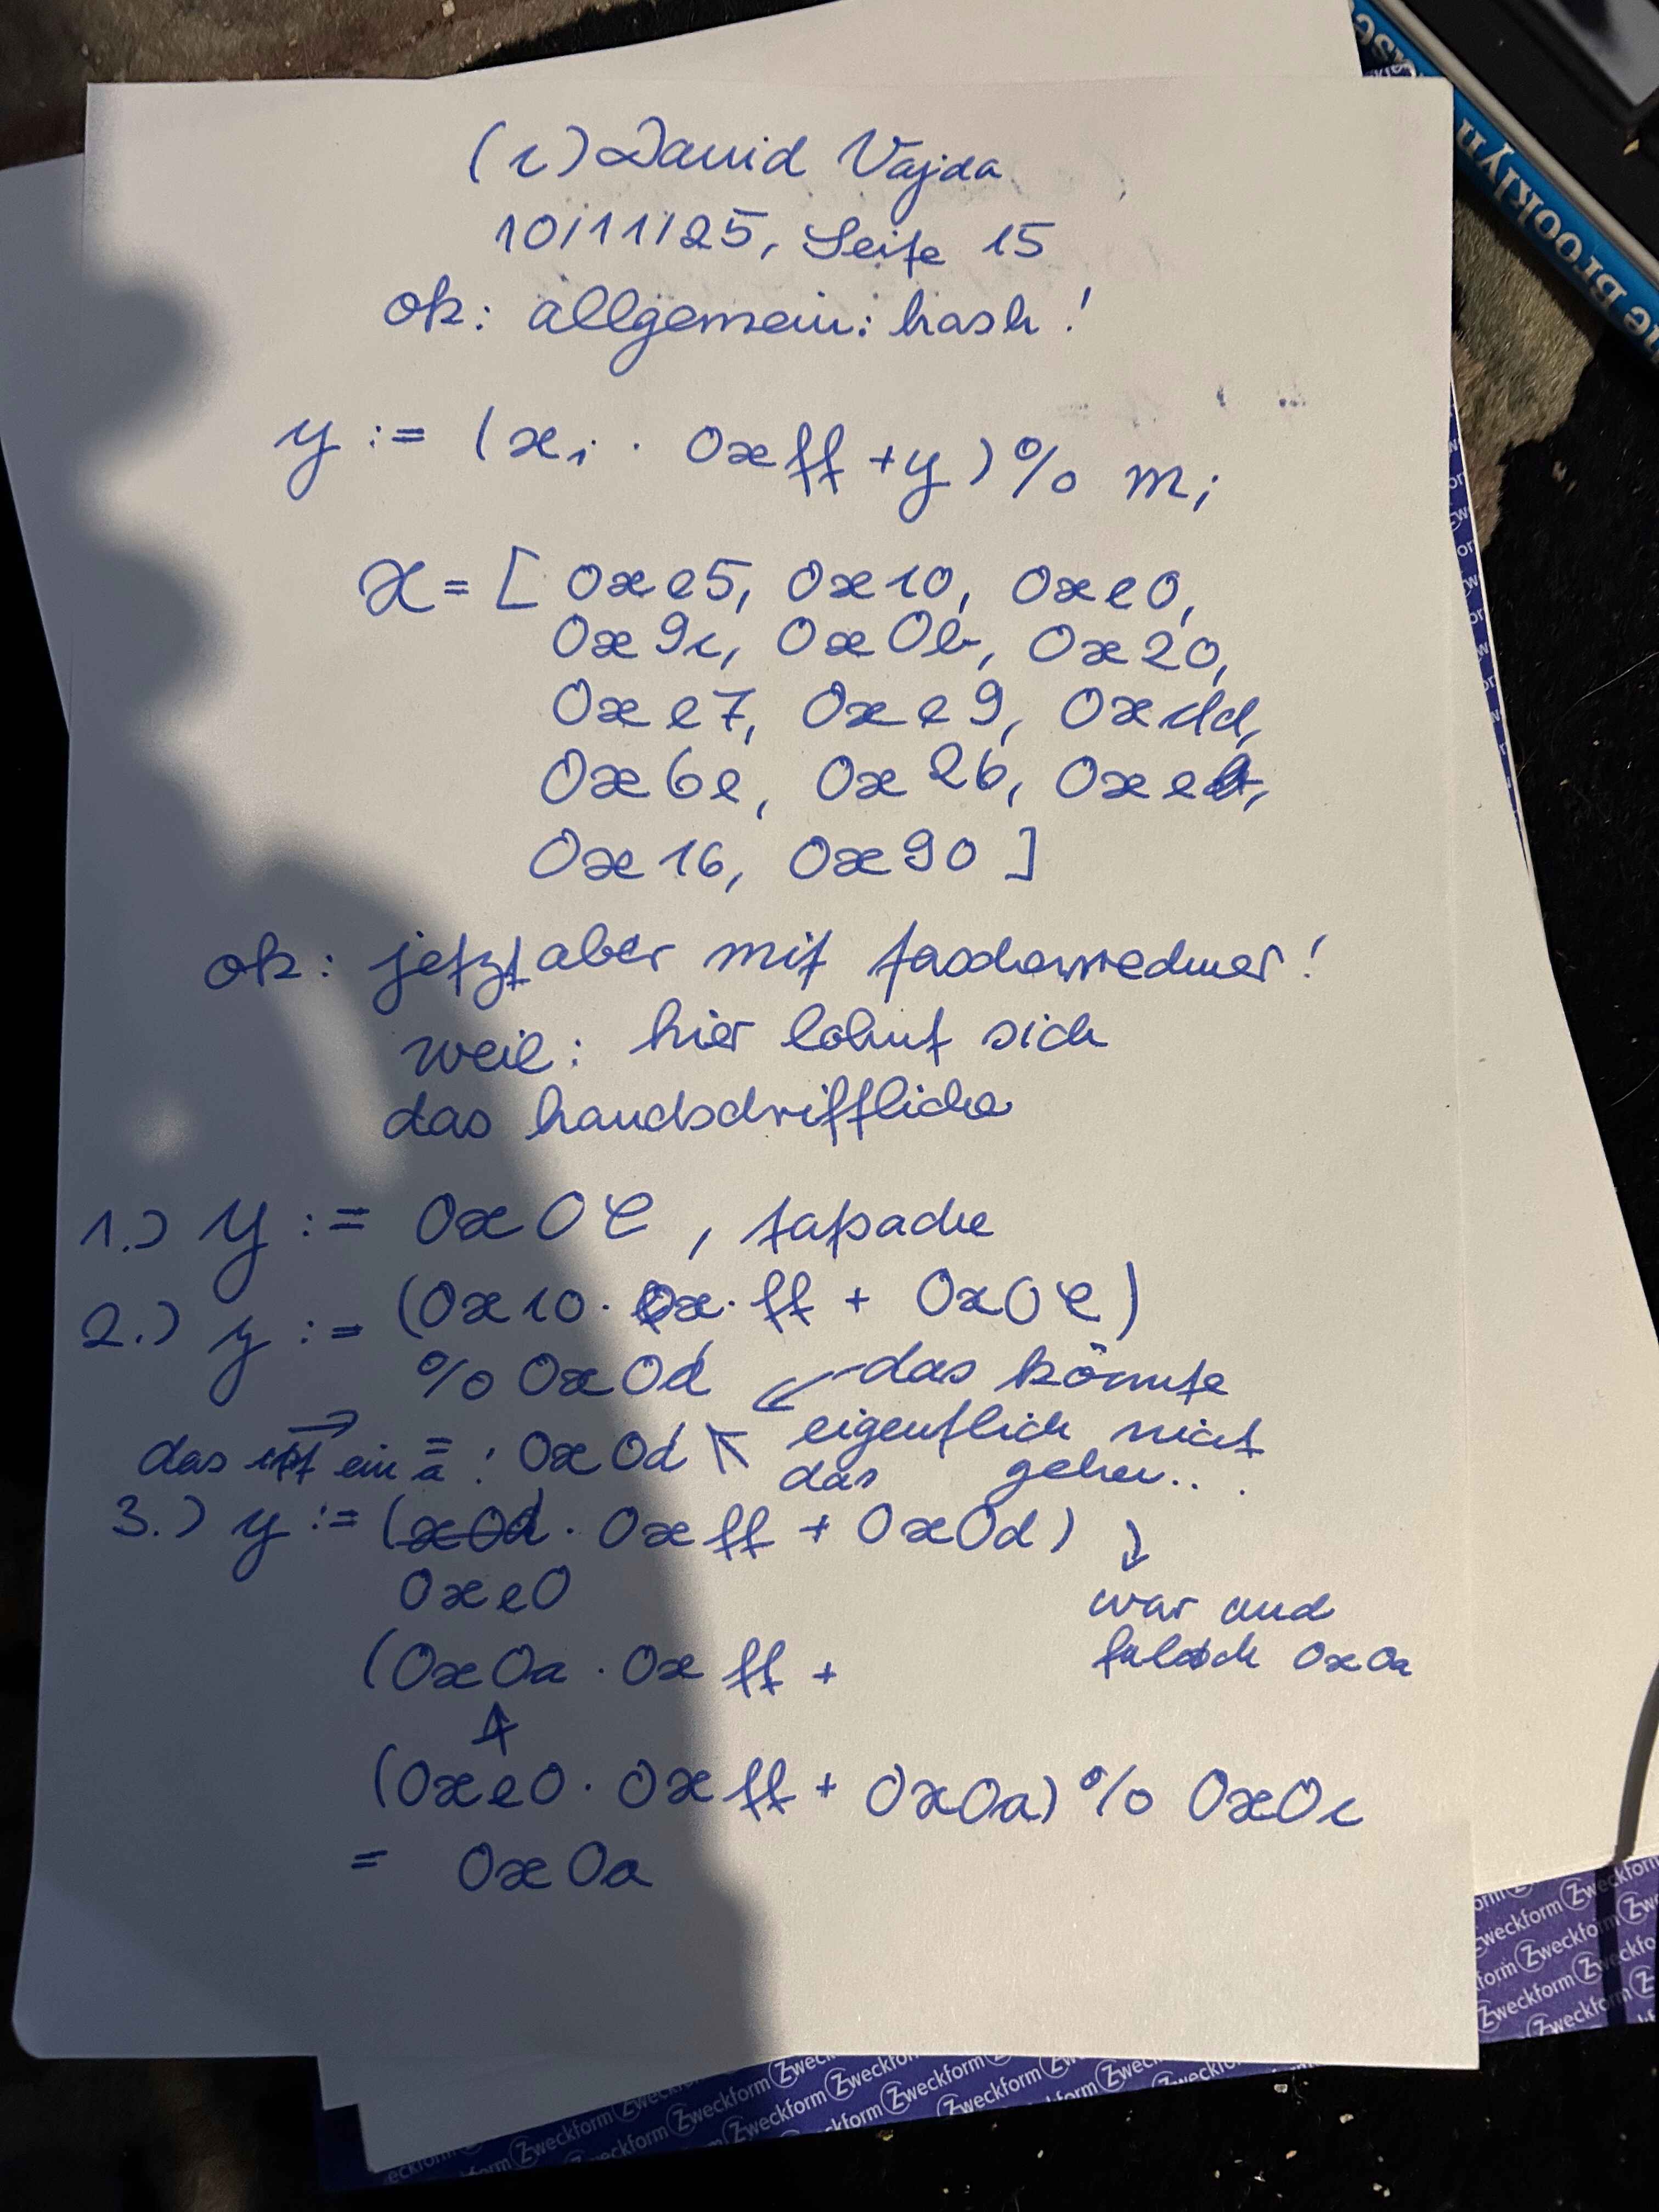 (c) David Vajda
10/11/25, Seite 15
ok: allgemein: hash!
y := (xi · 0xff + y) % m;
x = [ 0xe5, 0x10, 0xe0,
0x9c, 0x0b, 0x20,
0xe7, 0xe9, 0xdd,
0x6e, 0x26, 0xeb,
0x16, 0x90 ]
ok: jetzt aber mit taschenrechner!
weil: hier lohnt sich
das handschriftliche
1.) y := 0x0e, tatsache
2.) y := (0x10 · 0x · ff + 0x0e)
% 0x0d
das könnte
eigentlich nicht
das gehen...
das ist ein a : 0x0d
3.) y := (x0d · 0xff + 0x0d)
0xe0
war auch
falsch 0x0a
(0x0a · 0xff +
(0xe0 · 0xff + 0x0a) % 0x0c
= 0x0a
Brooklyn
Zweckform